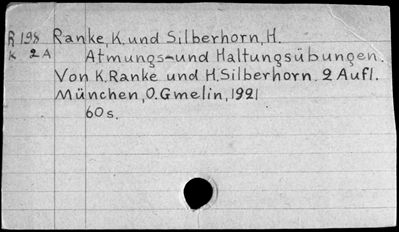 R 198 Ranke, K. und Silberhorn, H.
K 2A Atmungs- und Haltungsübungen.
Von K. Ranke und H. Silberhorn. 2 Aufl.
München, O. Gmelin, 1921
60 s.